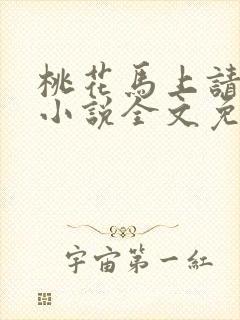 桃花馬上請
小說全文免
宇宙第一紅